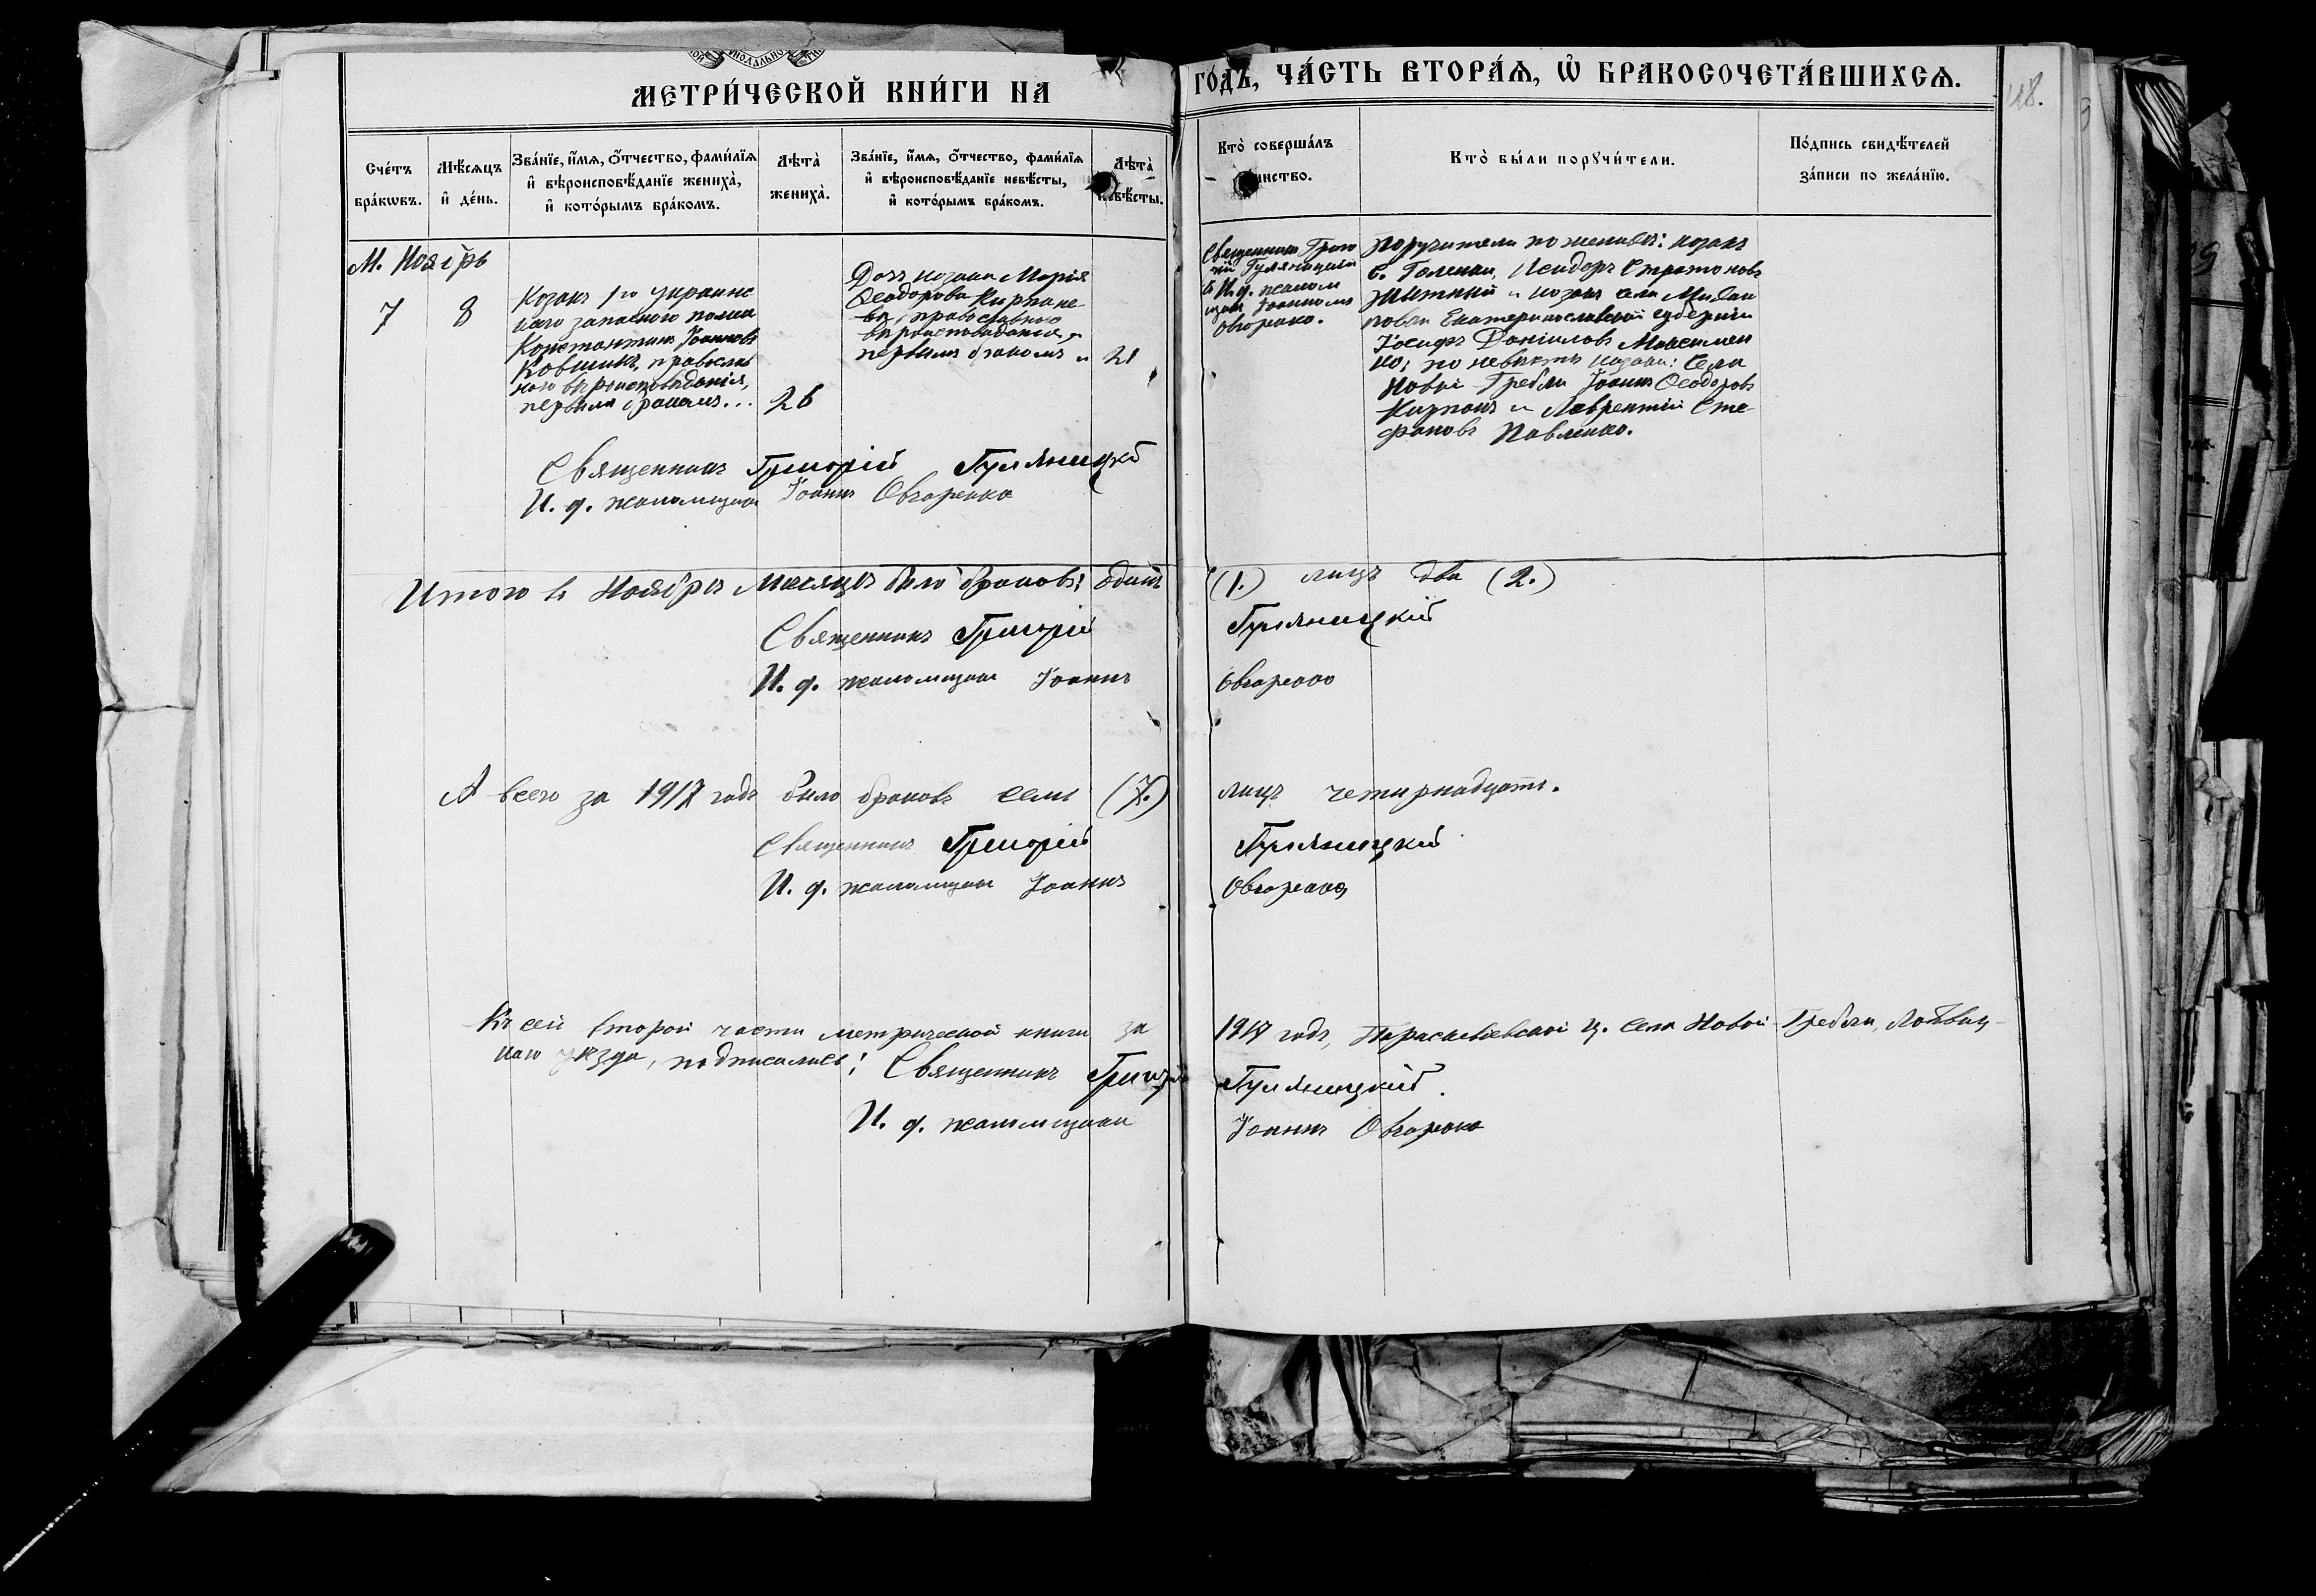 МЕТРИ́ЧЕСКОЙ КНИ́ГИ НА
ГО́ДЪ, ЧА́СТЬ ВТОРА́Я, Ѽ БРАКОСОЧЕТА́ВШИХСЯ.
48.
Сче́тъ бра́кѡвъ.
Мѣ́сяцъ и҆ де́нь.
Зва́нїе, и҆́мя, ѻ҆́тчество, фами́лїя и҆ вѣроисповѣ́данїе жениха̀, и҆ кото́рымъ бра́комъ.
Лѣта̀ жениха̀.
Зва́нїе, и҆́мя, ѻ҆́тчество, фами́лїя и҆ вѣроисповѣ́данїе невѣ́сты, и҆ кото́рымъ бра́комъ.
Лѣта̀ невѣ́сты.
Кто̀ соверша́лъ
Кто̀ бы́ли порꙋчи́тели.
По́дпись свидѣ́телей за́писи по жела́нїю.
М. Ноябрь
7
8
Козакъ 1го Украинс
каго запаснаго полка
Константинъ Іоанновъ
Ковшикъ, православ
наго вѣроисповѣданія,
первымъ бракомъ...
26
Дочь козака Марія
Ѳеодорова Кирпане
ва, православнаго
вѣроисповѣданія,
первымъ бракомъ
21
Священникъ Григо
рій Гуляницкій
И. д. псалом
щика Іоанномъ
Овчаренко.
Поручители по женихѣ: козакъ
с. Галенки, Исидоръ Стратоновъ
Жытный и козакъ села
Екатеринославской губерніи
Іосифъ Даніиловъ Максимен
ко; по невѣстѣ козаки: села
Новой Гребли Іоаннъ Ѳеодоровъ
Кирпанъ и Лаврентій Сте
фановъ Павленко.
Священникъ Григорій Гуляницкій
И. д. псаломщика Іоаннъ Овчаренко
Итого въ Ноябрѣ мѣсяцѣ было браковъ: одинъ (1.) лицъ два (2.)
Священникъ Григорій Гуляницкій
И. д. псаломщика Іоаннъ Овчаренко
А всего за 1917 годъ было браковъ семь (7.) лицъ четырнадцать.
Священникъ Григорій Гуляницкій
И. д. псаломщика Іоаннъ Овчаренко
Къ сей второй части метрической книги за 1917 годъ, Параскевіевской ц. села Новой-Гребли, Лохвиц-
каго уѣзда, подписались: Священникъ Григорій Гуляницкій.
И. д. псаломщика Іоаннъ Овчаренко